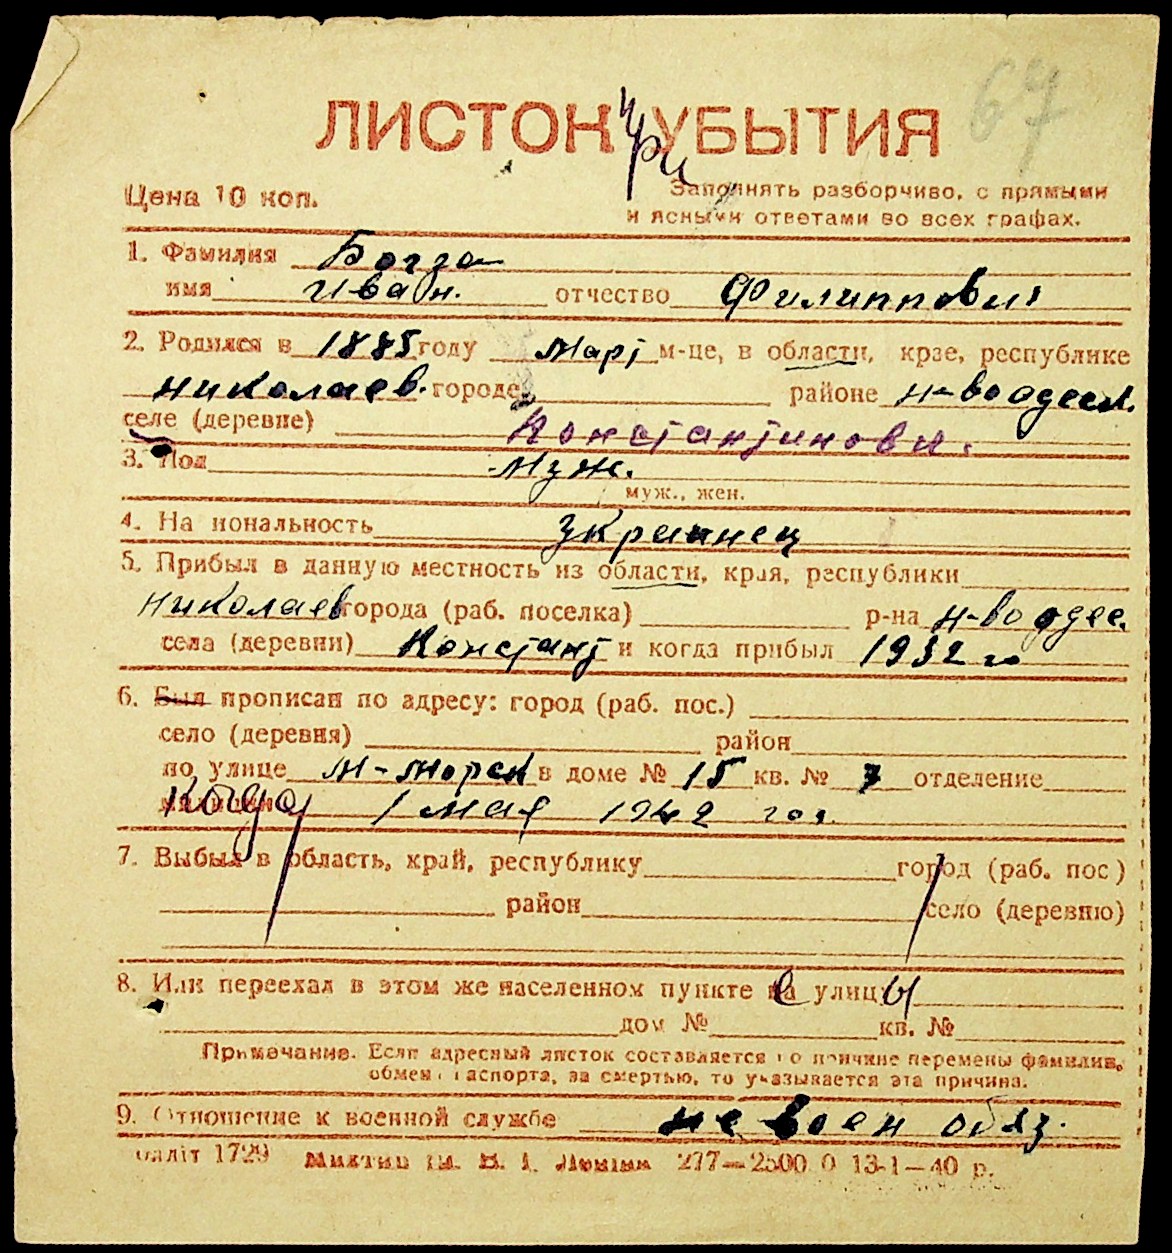 67
ЛИСТОК при УБЫТИЯ
Цена 10 коп.
Заполнять разборчиво, с прямыми
и ясными ответами во всех графах.
1. Фамилия Богза
имя Иван. отчество Филиппович
2. Родился в 1885 году Март м-це, в области, крае, республике
Николаев. городе районе Н-во одесск.
селе (деревне) Константиновк.
3. Пол муж.
муж., жен.
4. На иональность Украинец
5. Прибыл в данную местность из области, края, республики
Николаев города (раб. поселка) р-на Н-во одес.
села (деревни) Констант и когда прибыл 1932 го
6. Был прописан по адресу: город (раб. пос.)
село (деревня) район
по улице М-морск в доме № 15 кв. № 7 отделение
когда 1 мая 1942 год.
7. Выбыл в область, край, республику город (раб. пос)
район село (деревню)
8. Или переехал в этом же населенном пункте с улицы
дом № кв. №
Примечание. Если адресный листок составляется по причине перемены фамилии,
обмен паспорта, за смертью, то указывается эта причина.
9. Отношение к военной службе не воен обяз.
1729 277—2500 0 13-1—40 р.